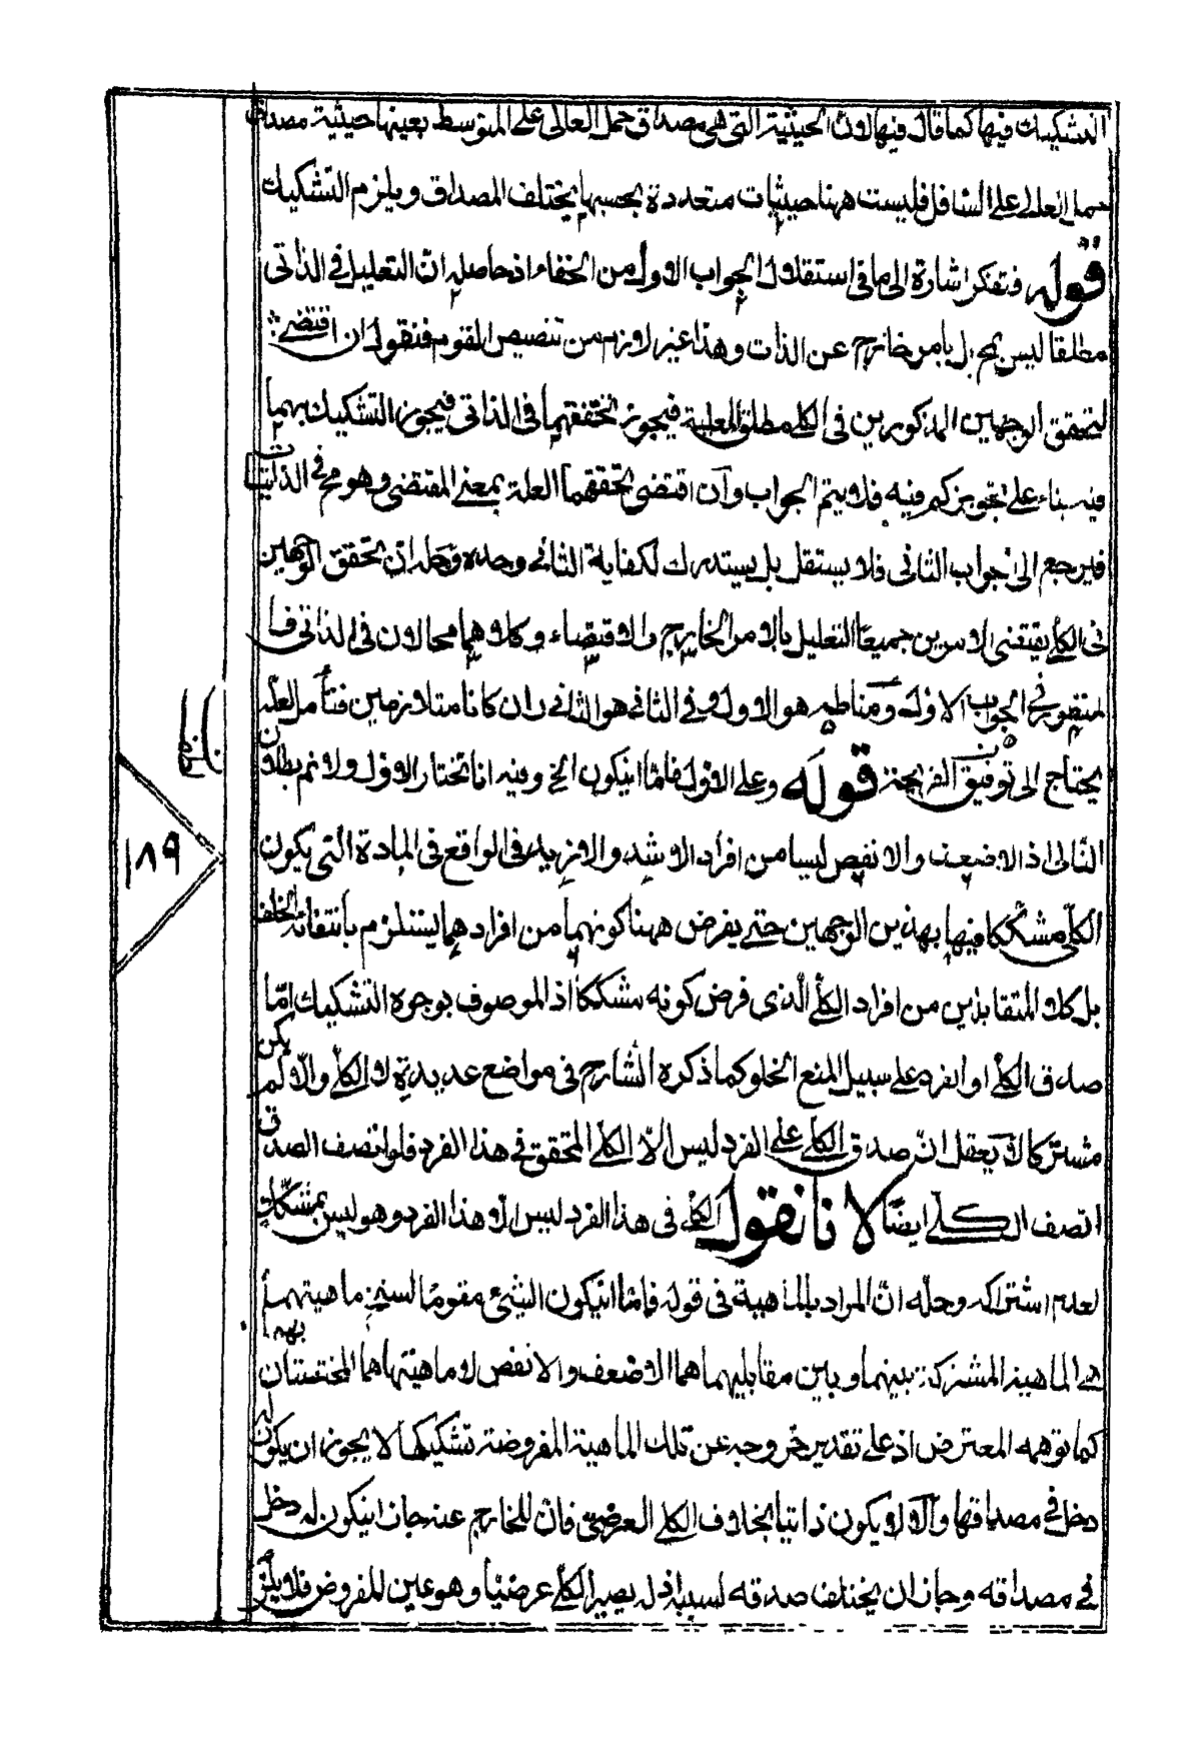 التشكيك فيها كما قال فيها لان الحيثية التى هى مصداق حمل العالى على المتوسط بعينها حيثية مصداق
حمل العالى على السافل فليست ههنا حيثيات متعددة بحسبها يختلف المصداق ويلزم التشكيك
قوله فتفكر اشارة الى ما فى استقلال الجواب الاول من الخفاء اذ حاصله ان التعليل فى الذاتى
مطلقا ليس بامر خارج عن الذات وهذا غير لازم من تنصيص القوم فنقول ان اقتضى
تحقق الوجهين المذكورين فى الكلى مطلق العلية فيجوز تحققهما فى الذاتى فيجوز التشكيك بهما
فيه بناء على تجويزكم فيه فلا يتم الجواب وان اقتضى تحققهما العلة بمعنى المقتضى وهو مح فى الذاتيات
فيرجع الى الجواب الثانى فلا يستقل بل يستدرك لكفاية الثانى وحده وحله ان تحقق الوجهين
فى الكلى يقتضى الامرين جميعا التعليل بالامر الخارج والاقتضاء وكلاهما محالان فى الذاتى فا
لمنظور فى الجواب الاول ومناطه هو الاول وفى الثانى هو الثانى وان كانا متلازمين فتأمل لعله
يحتاج الى توفيق القريحة قوله وعلى الاول فاما ان يكون الخ وفيه انا نختار الاول ولا نم بطلان
التالى اذ الاضعف والانقص ليسا من افراد الاشد والازيد فى الواقع فى المادة التى يكون
الكلى مشككا فيها بهذين الوجهين حتى يفرض ههنا كونهما من افرادهما يستلزم بانتفائه الخلف
بل كلا المتقابلين من افراد الكلى الذى فرض كونه مشككا اذ الموصوف بوجوه التشكيك اما
صدق الكلى او الفرد على سبيل المنع الخلو كما ذكره الشارح فى مواضع عديدة لا الكلى والا لم يكن
مشتركا لا يعقل ان صدق الكلى على الفرد ليس الا الكلى المتحقق فى هذا الفرد فلو اتصف الصدق
اتصف الكلى ايضا لانا نقول الكلى فى هذا الفرد ليس الا هذا الفرد وهو ليس بمشكك
لعدم اشتراكه وحله ان المراد بالماهية فى قوله فاما ان يكون الشئ مقوما لسنخ ماهيتهما
هى الماهية المشتركة بينهما وبين مقابليهما هما الاضعف والانقص لا ماهيتهما المختصتان بهما
كما توهمه المعترض اذ على تقدير خروجه عن تلك الماهية المفروضة تشكيكها لا يجوز ان يكون له
دخل فى مصداقها والا لا يكون ذاتيا بخلاف الكلى العرضى فان للخارج عنه جاز ان يكون له دخل
فى مصداقه وجاز ان يختلف صدقه لسببه اذ له يصير الكلى عرضيا وهو عين المفروض فلا يلزم
١٨٩